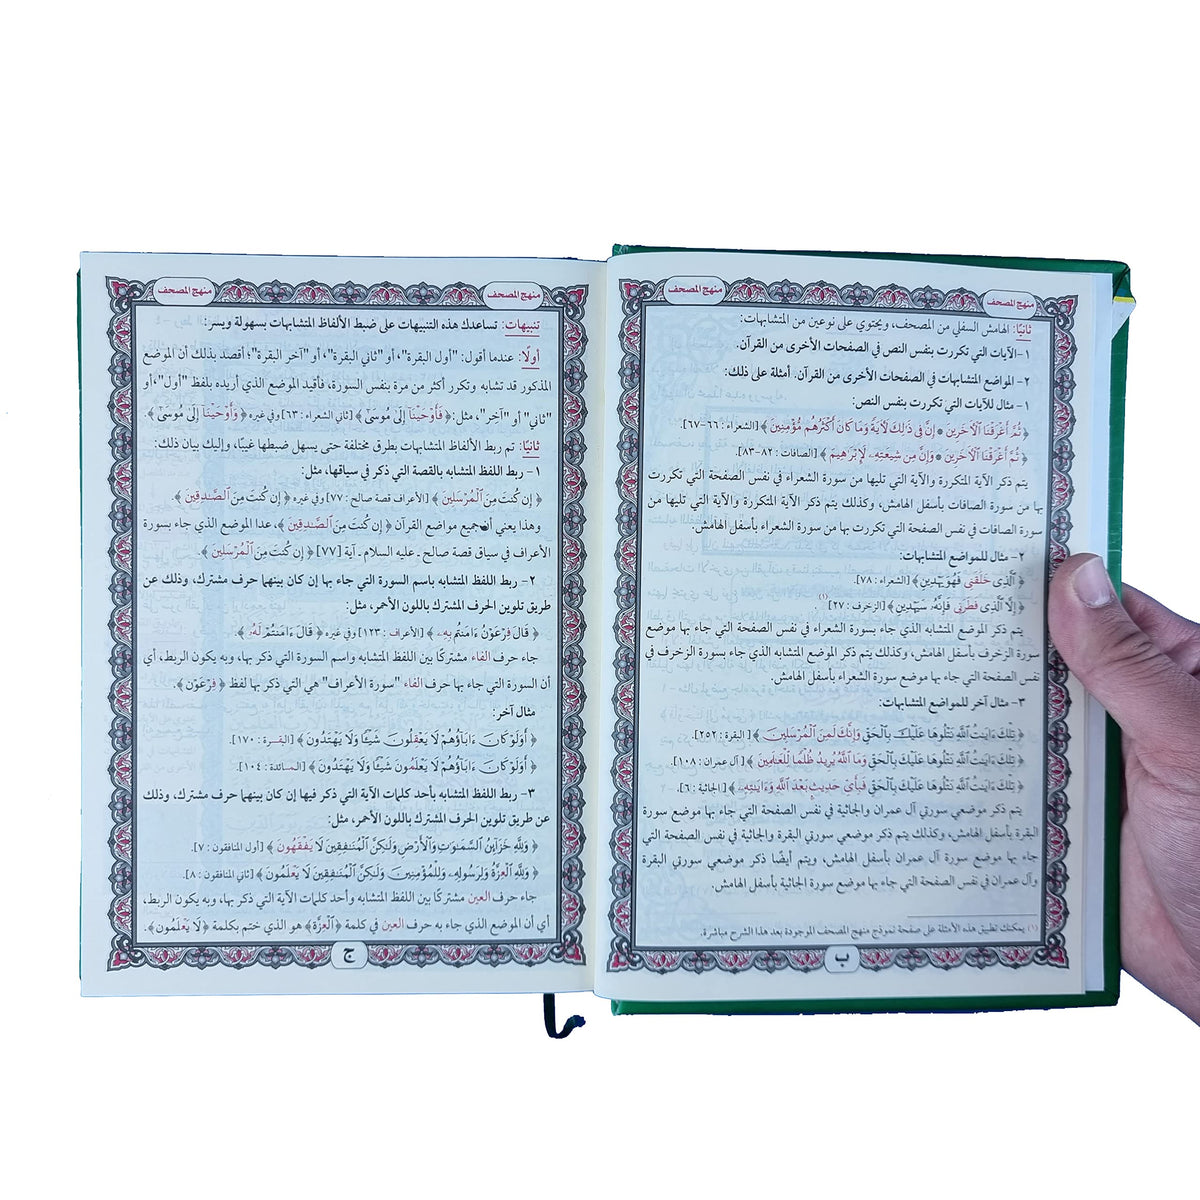 منهج المصحف
منهج المصحف
ثانيًا: الهامش السفلي من المصحف، ويحتوي على نوعين من المتشابهات:
١-الآيات التي تكررت بنفس النص في الصفحات الأخرى من القرآن.
٢- المواضع المتشابهات في الصفحات الأخرى من القرآن. أمثلة على ذلك:
١- مثال للآيات التي تكررت بنفس النص:
﴿ ثُمَّ أَغْرَقْنَا ٱلْأَخَرِينَ ۞ إِنَّ فِى ذَٰلِكَ لَأَيَةً وَمَا كَانَ أَكْثَرُهُم مُّؤْمِنِينَ ﴾ [الشعراء : ٦٦-٦٧].
﴿ ثُمَّ أَغْرَقْنَا ٱلْأَخَرِينَ ۞ وَإِنَّ مِن شِيعَتِهِۦ لَإِبْرَٰهِيمَ ﴾ [الصافات : ٨٢-٨٣].
يتم ذكر الآية المتكررة والآية التي تليها من سورة الشعراء في نفس الصفحة التي تكررت
بها من سورة الصافات بأسفل الهامش، وكذلك يتم ذكر الآية المتكررة والآية التي تليها من
سورة الصافات في نفس الصفحة التي تكررت بها من سورة الشعراء بأسفل الهامش.
٢- مثال للمواضع المتشابهات:
﴿ ٱلَّذِى خَلَقَنِى فَهُوَ يَهْدِينِ ﴾ [الشعراء : ٧٨].
﴿ إِلَّا ٱلَّذِى فَطَرَنِى فَإِنَّهُۥ سَيَهْدِينِ ﴾ [الزخرف : ٢٧] (١).
يتم ذكر الموضع المتشابه الذي جاء بسورة الشعراء في نفس الصفحة التي جاء بها موضع
سورة الزخرف بأسفل الهامش، وكذلك يتم ذكر الموضع المتشابه الذي جاء بسورة الزخرف في
نفس الصفحة التي جاء بها موضع سورة الشعراء بأسفل الهامش.
٣- مثال آخر للمواضع المتشابهات:
﴿ تِلْكَ ءَايَٰتُ ٱللَّهِ نَتْلُوهَا عَلَيْكَ بِٱلْحَقِّ وَإِنَّكَ لَمِنَ ٱلْمُرْسَلِينَ ﴾ [البقرة : ٢٥٢].
﴿ تِلْكَ ءَايَٰتُ ٱللَّهِ نَتْلُوهَا عَلَيْكَ بِٱلْحَقِّ وَمَا ٱللَّهُ يُرِيدُ ظُلْمًا لِّلْعَٰلَمِينَ ﴾ [آل عمران : ١٠٨].
﴿ تِلْكَ ءَايَٰتُ ٱللَّهِ نَتْلُوهَا عَلَيْكَ بِٱلْحَقِّ فَبِأَىِّ حَدِيثٍۭ بَعْدَ ٱللَّهِ وَءَايَٰتِهِۦ ﴾ [الجاثية : ٦].
يتم ذكر موضعي سورتي آل عمران والجاثية في نفس الصفحة التي جاء بها موضع سورة
البقرة بأسفل الهامش، وكذلك يتم ذكر موضعي سورتي البقرة والجاثية في نفس الصفحة التي
جاء بها موضع سورة آل عمران بأسفل الهامش، ويتم أيضًا ذكر موضعي سورتي البقرة
وآل عمران في نفس الصفحة التي جاء بها موضع سورة الجاثية بأسفل الهامش.
(١) يمكنك تطبيق هذه الأمثلة على صفحة نموذج منهج المصحف الموجودة بعد هذا الشرح مباشرة.
ب
منهج المصحف
منهج المصحف
تنبيهات: تساعدك هذه التنبيهات على ضبط الألفاظ المتشابهات بسهولة ويسر:
أولًا: عندما أقول: "أول البقرة"، أو "ثاني البقرة"، أو "آخر البقرة"؛ أقصد بذلك أن الموضع
المذكور قد تشابه وتكرر أكثر من مرة بنفس السورة، فأقيد الموضع الذي أريده بلفظ "أول"، أو
"ثاني" أو "آخر"، مثل: ﴿ فَأَوْحَيْنَآ إِلَىٰ مُوسَىٰٓ ﴾ [ثاني الشعراء : ٦٣] وفي غيره ﴿ وَأَوْحَيْنَآ إِلَىٰ مُوسَىٰٓ ﴾.
ثانيًا: تم ربط الألفاظ المتشابهات بطرق مختلفة حتى يسهل ضبطها غيبًا، وإليك بيان ذلك:
١- ربط اللفظ المتشابه بالقصة التي ذكر في سياقها، مثل:
﴿ إِن كُنتَ مِنَ ٱلْمُرْسَلِينَ ﴾ [الأعراف قصة صالح : ٧٧] وفي غيره ﴿ إِن كُنتَ مِنَ ٱلصَّٰدِقِينَ ﴾.
وهذا يعني أن جميع مواضع القرآن ﴿ إِن كُنتَ مِنَ ٱلصَّٰدِقِينَ ﴾، عدا الموضع الذي جاء بسورة
الأعراف في سياق قصة صالح ـ عليه السلام ـ آية [٧٧] ﴿ إِن كُنتَ مِنَ ٱلْمُرْسَلِينَ ﴾.
٢- ربط اللفظ المتشابه باسم السورة التي جاء بها إن كان بينهما حرف مشترك، وذلك عن
طريق تلوين الحرف المشترك باللون الأحمر، مثل:
﴿ قَالَ فِرْعَوْنُ ءَامَنتُم بِهِۦ ﴾ [الأعراف : ١٢٣] وفي غيره ﴿ قَالَ ءَامَنتُمْ لَهُۥ ﴾.
جاء حرف الفاء مشتركًا بين اللفظ المتشابه واسم السورة التي ذكر بها، وبه يكون الربط، أي
أن السورة التي جاء بها حرف الفاء "سورة الأعراف" هي التي ذكر بها لفظ ﴿ فِرْعَوْن ﴾.
مثال آخر:
﴿ أَوَلَوْ كَانَ ءَابَآؤُهُمْ لَا يَعْقِلُونَ شَيْـًٔا وَلَا يَهْتَدُونَ ﴾ [البقـرة : ١٧٠].
﴿ أَوَلَوْ كَانَ ءَابَآؤُهُمْ لَا يَعْلَمُونَ شَيْـًٔا وَلَا يَهْتَدُونَ ﴾ [المـائدة : ١٠٤].
٣- ربط اللفظ المتشابه بأحد كلمات الآية التي ذكر فيها إن كان بينهما حرف مشترك، وذلك
عن طريق تلوين الحرف المشترك باللون الأحمر، مثل:
﴿ وَلِلَّهِ خَزَآئِنُ ٱلسَّمَٰوَٰتِ وَٱلْأَرْضِ وَلَٰكِنَّ ٱلْمُنَٰفِقِينَ لَا يَفْقَهُونَ ﴾ [أول المنافقون : ٧].
﴿ وَلِلَّهِ ٱلْعِزَّةُ وَلِرَسُولِهِۦ وَلِلْمُؤْمِنِينَ وَلَٰكِنَّ ٱلْمُنَٰفِقِينَ لَا يَعْلَمُونَ ﴾ [ثاني المنافقون : ٨].
جاء حرف العين مشتركًا بين اللفظ المتشابه وأحد كلمات الآية التي ذكر بها، وبه يكون الربط،
أي أن الموضع الذي جاء به حرف العين في كلمة ﴿ ٱلْعِزَّة ﴾ هو الذي ختم بكلمة ﴿ لَا يَعْلَمُون ﴾.
ج